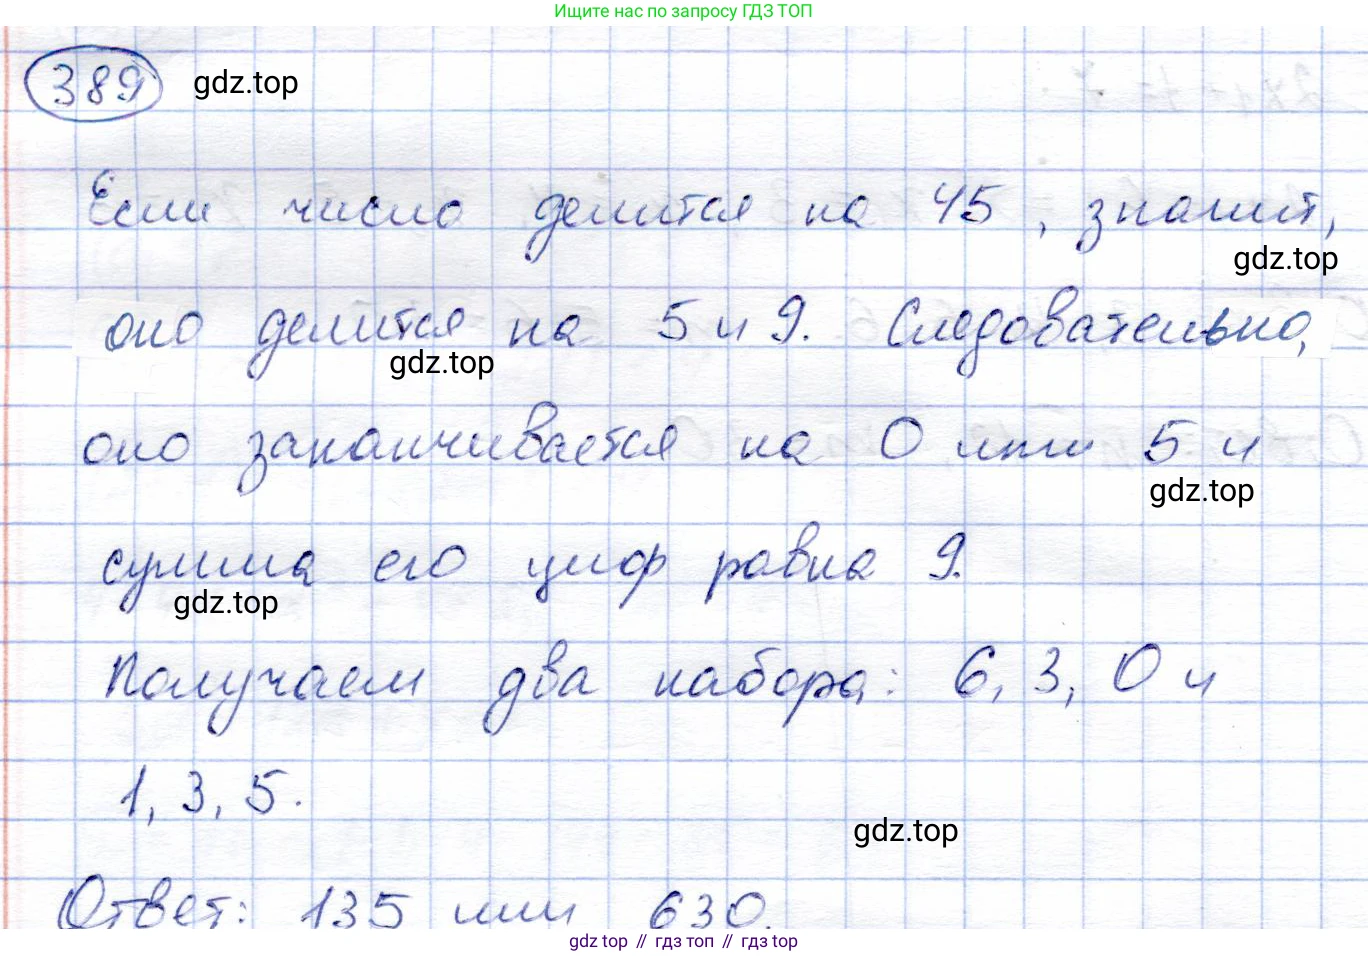 Ищите нас по запросу ГДЗ ТОП
389 gdz.top
Если число делится на 45, значит,
gdz.top
оно делится на 5 и 9. Следовательно,
gdz.top
оно заканчивается на 0 или 5 и
gdz.top
сумма его цифр равна 9.
gdz.top
Получаем два набора: 6, 3, 0 и
1, 3, 5.
gdz.top
Ответ: 135 или 630.
gdz top // гдз топ // gdz top